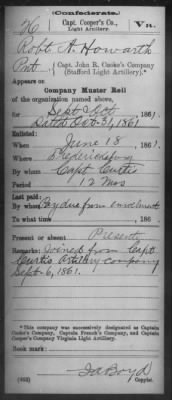 (Confederate.)
H Capt. Cooper's Co., Va.
Light Artillery.
Robt A. Howarth
Pvt Capt. John R. Cooke's Company
(Stafford Light Artillery).*
Appears on
Company Muster Roll
of the organization named above,
for Sept & Oct , 1861.
Dated Oct 31, 1861
Enlisted:
When June 18 , 1861.
Where Fredericksburg
By whom Capt Curtis
Period 12 Mos
Last paid:
By whom Pay due from enrolment
To what time , 186 .
Present or absent Present
Remarks: Joined from Capt
Curtis Artillery company
Sept. 6, 1861.
*This company was successively designated as Captain
Cooke's Company, Captain French's Company, and Captain
Cooper's Company Virginia Light Artillery.
Book mark:
J A Boyd
(642) Copyist.